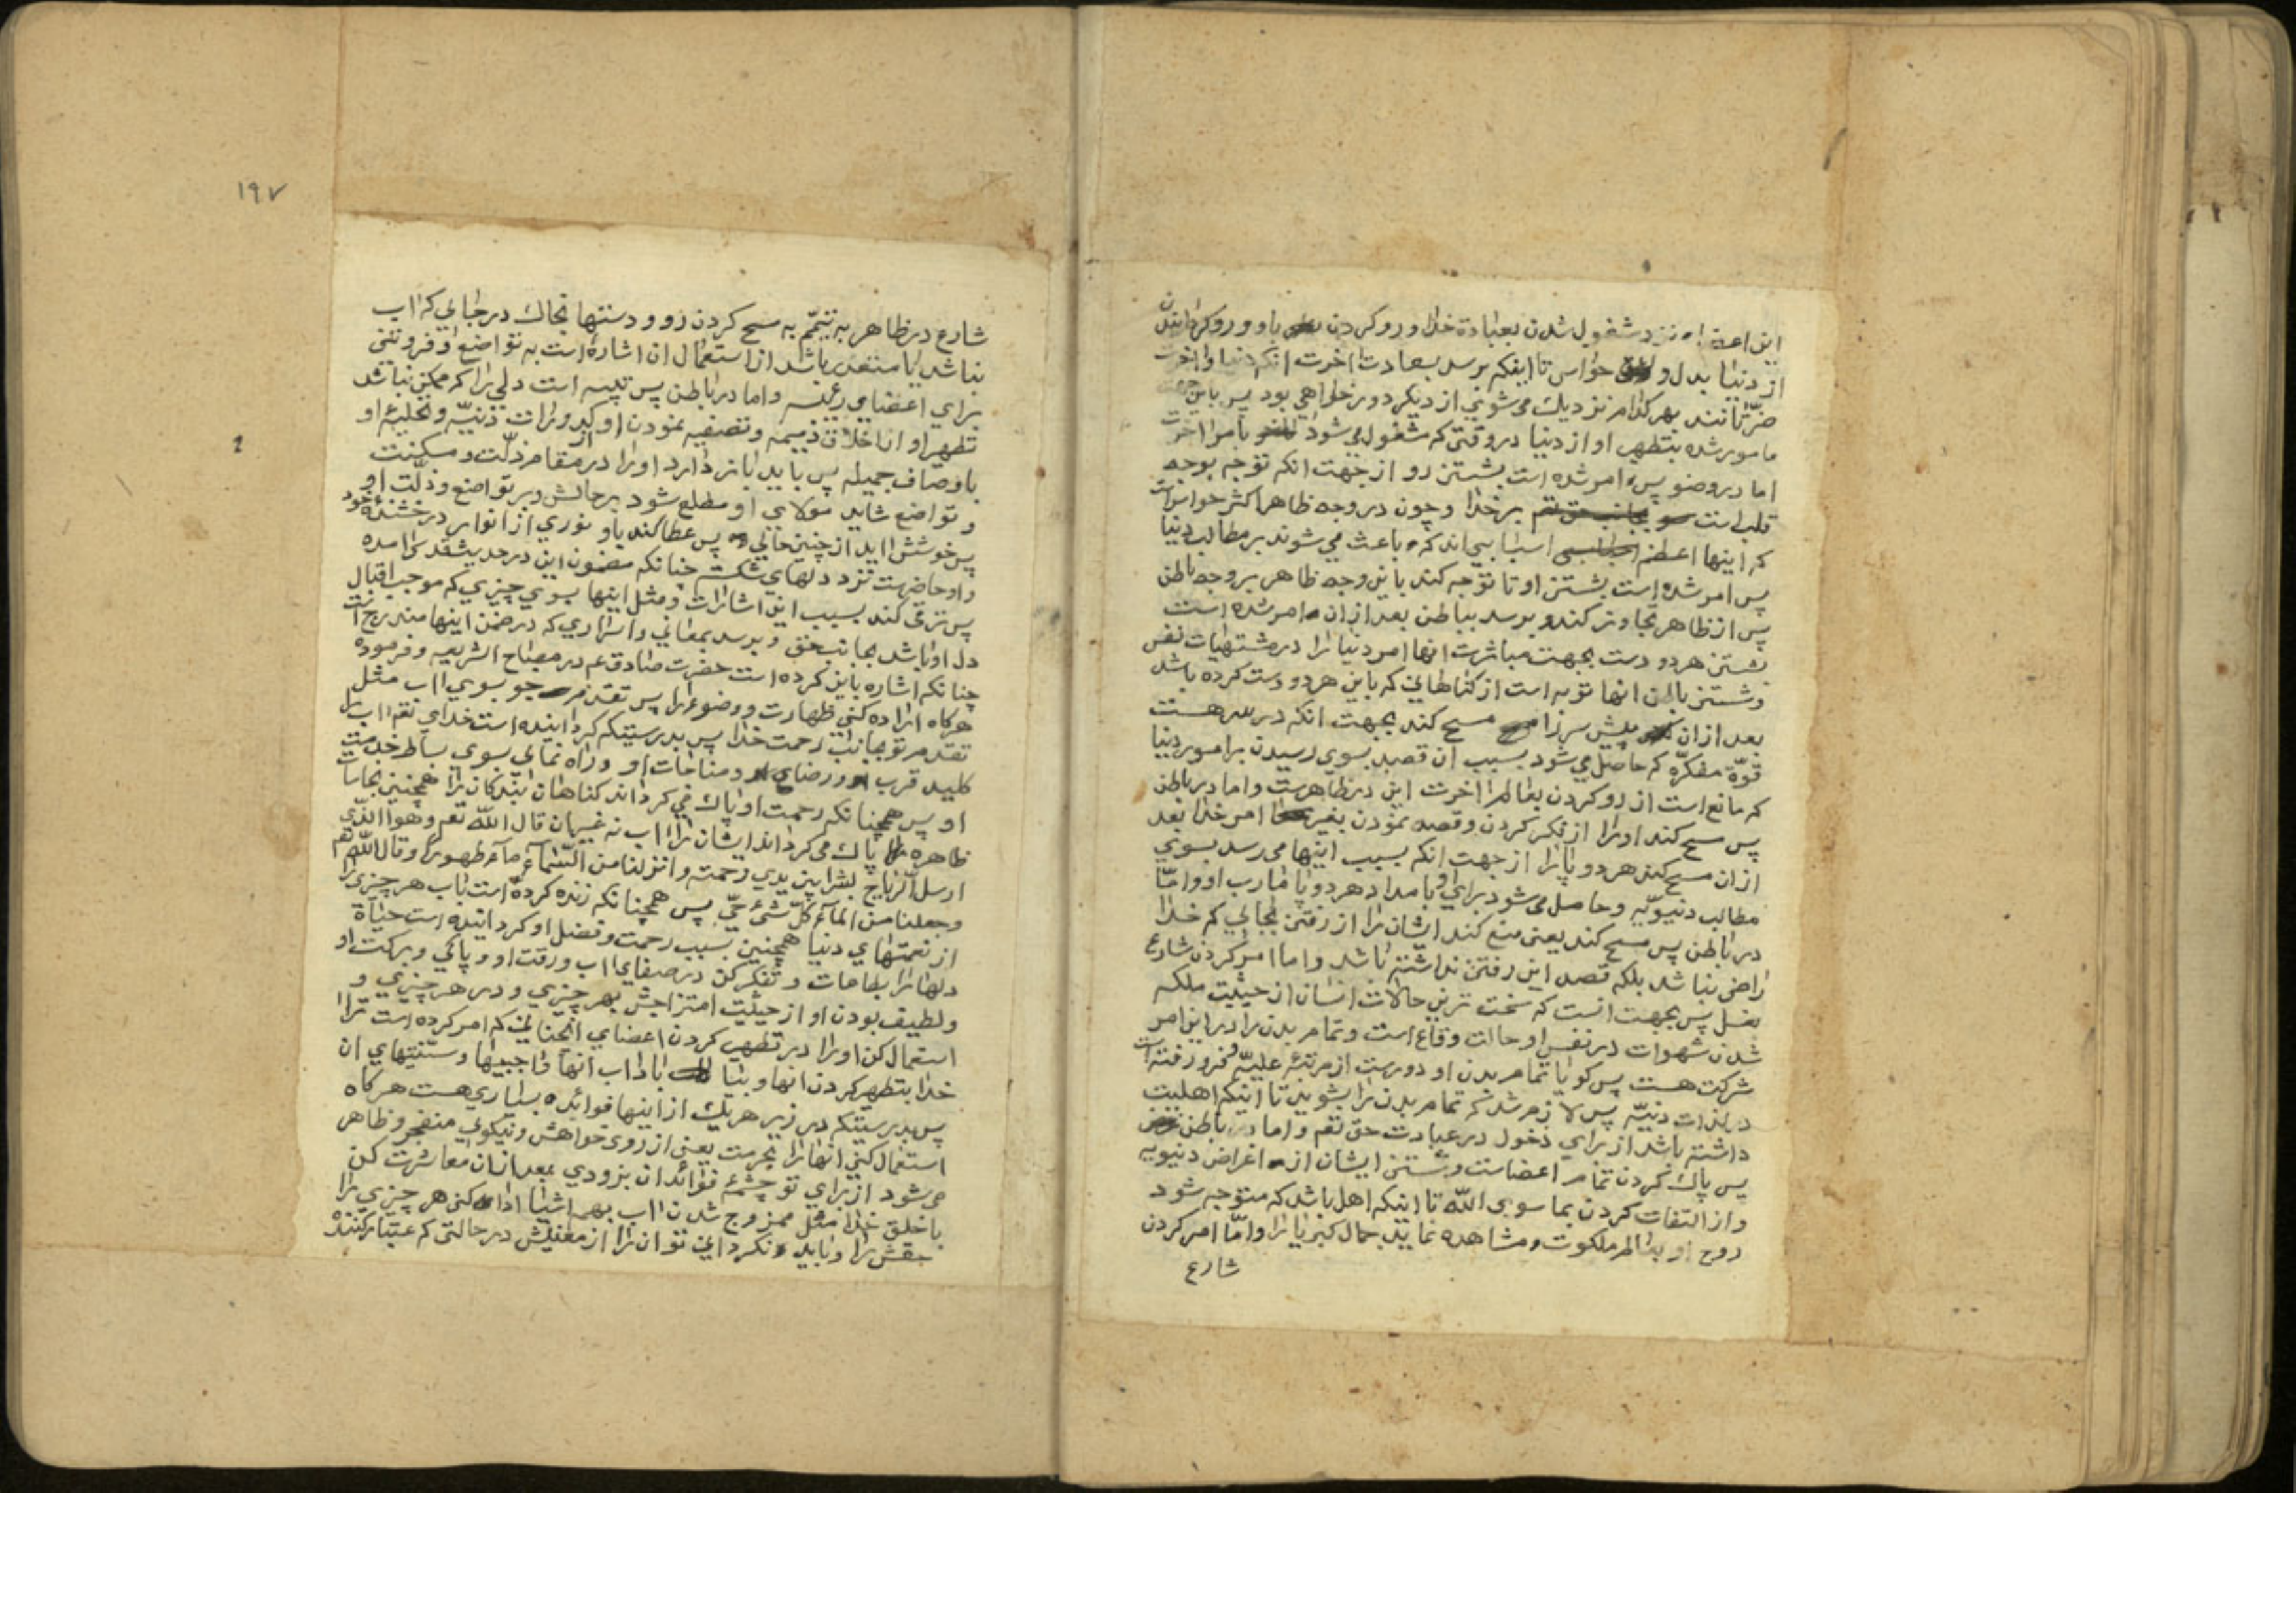 این اعضاء نزد مشغول شدن بعبادة خدا و رو کردن باو و رو کردانیدن
از دنیا بدل و حواس تا اینکه برسد بسعادت اخرت انکه دنیا و اخرت
ضرّتانند بهر کدام نزدیک می شوی از دیکر دور خواهی بود پس باین جهت
مامور شده بتطهیر او از دنیا در وقتی که مشغول می شود بامر اخرت
اما در وضو پس امر شده است بشستن رو از جهت انکه توجه بوجه
قلب است بر خدا و چون در وجه ظاهر اکثر حواس است
که اینها اعظم اسبابی اند که باعث می شوند بر مطالب دنیا
پس امر شده است بشستن او تا توجه کند باین وجه ظاهر بر وجه باطن
پس از ظاهر تجاوز کند و برسد بباطن بعد از ان امر شده است
بشستن هر دو دست بجهت مباشرت انها امر دنیا را در مشتهیات نفس
و شستن انها توبه است از کناهانی که باین هر دو دست کرده باشد
بعد از ان پیش سر را مسح کند بجهت انکه در سر هست
قوّة مفکرّه که حاصل می شود بسبب ان قصد بسوی رسیدن بر امور دنیا
که مانع است از رو کردن بعالم اخرت این در ظاهرست و اما در باطن
پس مسح کند او را از فکر کردن و قصد نمودن بغیر امر خدا بعد
از ان مسح کند هر دو پا را از جهت انکه بسبب اینها می رسد بسوی
مطالب دنیویّه و حاصل می شود برای او بامداد هر دو پا مارب او و امّا
در باطن پس مسح کند یعنی منع کند ایشان را از رفتن بجائی که خدا
راضی نباشد بلکه قصد این رفتن نداشته باشد و اما امر کردن شارع
بغسل پس بجهت انست که سخت ترین حالات انسان از حیثیت ملکه
شدن شهوات در نفس او حالت وقاع است و تمام بدن را در این امر
شرکت هست پس کویا تمام بدن او دورست از مرتبه علیّه و فرو رفته است
در لذات دنیّه پس لازم شد که تمام بدن را بشوید تا اینکه اهلیت
داشته باشد از برای دخول در عبادت حق تعم و اما در باطن
پس پاک کردن تمام اعضاست و شستن ایشان از اغراض دنیویه
و از التفات کردن بما سوی اللّه تا اینکه اهل باشد که متوجه شود
روح او بعالم ملکوت و مشاهده نماید جمال کبریا را و امّا امر کردن
شارع
۱۹۷
شارع در ظاهر به تیمّم به مسح کردن رو و دستها بخاک در جائی که اب
نباشد یا متعذر باشد از استعمال ان اشاره است به تواضع و فروتنی
برای اعضای رئیسه و اما در باطن پس تنبیه است دلی را که ممکن نباشد
تطهیر او از اخلاق ذمیمه و تصفیه نمودن او از کدورات دنیّه و تحلیه او
باوصاف جمیله پس باید باز دارد او را در مقام ذلّت و مسکنت
و تواضع شاید مولای او مطلع شود بر حالش در تواضع و ذلّت او
پس خوشش اید از چنین حالی پس عطا کند باو نوری از انوار درخشنده خود
و او حاضرست نزد دلهای شکسته چنانکه مضمون این در حدیث قدسی امده
پس ترقی کند بسبب این اشارات و مثل اینها بسوی چیزی که موجب اقبال
دل او باشد بجانب حق و برسد بمعانی و اسراری که در ضمن اینها مندرج است
چنانکه اشاره باین کرده است حضرت صادق عم در مصباح الشریعه و فرموده
هرکاه اراده کنی طهارت و وضوء را پس تقدم جو بسوی اب مثل
تقدم تو بجانب رحمت خدا پس بدرستیکه کردانیده است خدای تعم اب را
کلید قرب و رضای و مناجات او و راه نمای بسوی بساط خدمت
او پس همچنانکه رحمت او پاک می کرداند کناهان بندکان را همچنین نجاسات
ظاهره پاک می کرداند ایشان را اب نه غیر ان قال اللّه تعم و هو الذّی
ارسل الّریاح بشرا بین یدی رحمته و انزلنا من السّماء ماء طهورا و قال اللّه تعم
و جعلنا من الماء کلّ شیء حیّ پس همچنانکه زنده کرده است باب هر چیزی را
از نعمتهای دنیا همچنین بسبب رحمت و فضل او کردانیده است حیاة
دلها را بطاعات و تفکر کن در صفای اب و رقت او و پاکی و برکت او
و لطیف بودن او از حیثیت امتزاجش بهر چیزی و در هر چیزی و
استعمال کن او را در تطهیر کردن اعضای انچنانی که امر کرده است ترا
خدا بتطهیر کردن انها و بیا باداب انها واجبیها و سنّتیهای ان
پس بدرستیکه در زیر هر یک از اینها فوائده بسیاری هست هرکاه
استعمال کنی انها را بحرمت یعنی از روی خواهش و نیکوی منفجر و ظاهر
می شود از برای تو چشمهٔ فوائد ان بزودی بعد از ان معاشرت کن
با خلق خدا مثل ممزوج شدن اب بهمه اشیا ادا کنی هر چیزی را
حقش را و نکردانی تو ان را از معنیش در حالتی که عتبار کننده